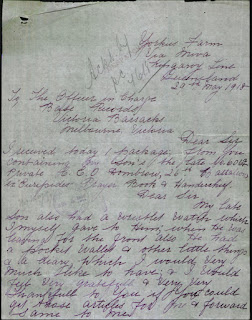 Yorkus Farm
Via Nova
Kingaroy Line
Queensland
22nd May 1918
To The Officer in Charge
Base Records
Victoria Barracks
Melbourne Victoria
Dear Sir
I received today a package from you
containing my Son's the late
Private C. E. O. 26th
Book & Handerchief.
Dear Sir
My late
Son also had a wristlet watch which
I myself gave to Him, when He was
leaving for the front also He had
a Pocket Wallet & other little things
& a diary which I would very
much like to have, & I would
feel very gratefull & very very
thankfull to you if you could
articles for me & forward
Same to me